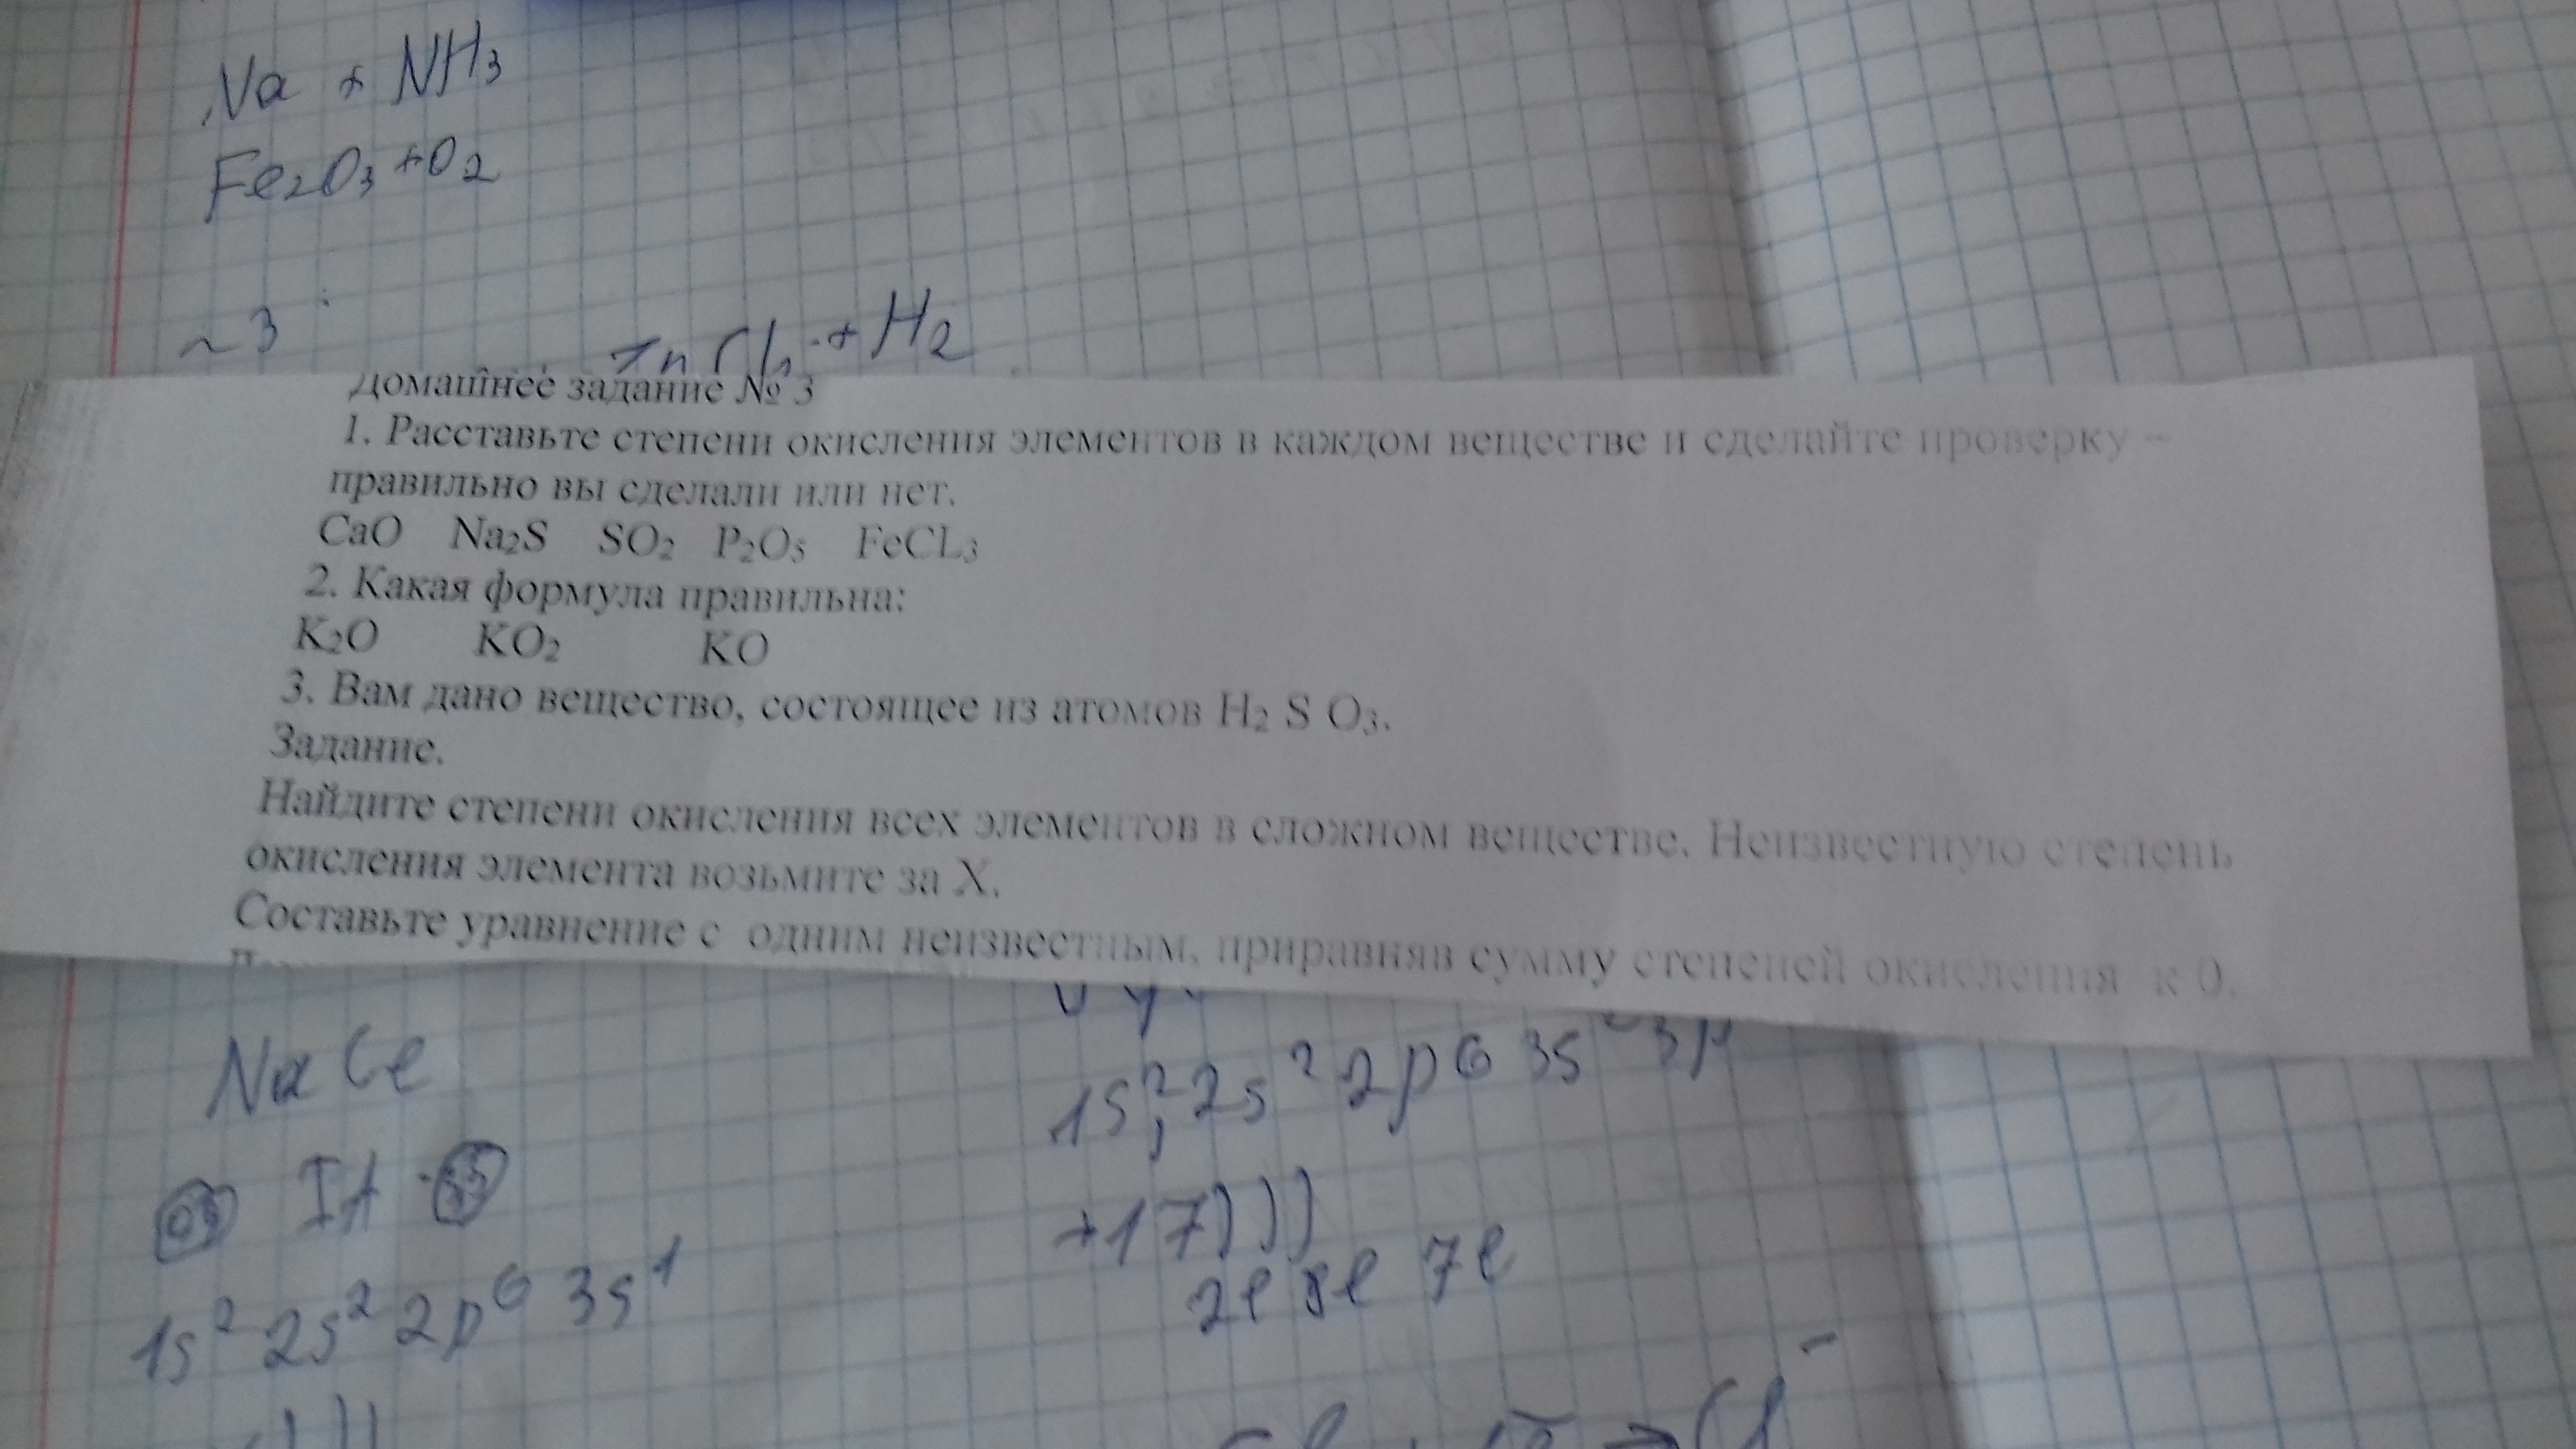 Na + NH3
Fe2O3 + O2
~ 3
+ H2
Домашнее задание № 3
1. Расставьте степени окисления элементов в каждом веществе и сделайте проверку –
правильно вы сделали или нет.
CaO Na2S SO2 P2O5 FeCL3
2. Какая формула правильна:
K2O KO2 KO
3. Вам дано вещество, состоящее из атомов H2 S O3.
Задание.
Найдите степени окисления всех элементов в сложном веществе. Неизвестную степень
окисления элемента возьмите за X.
Составьте уравнение с одним неизвестным, приравняв сумму степеней окисления к 0.
Na Cl
1s², 2s² 2p6 3s
IA
+17)))
2e 8e 7e
1s² 2s² 2p⁶ 3s¹